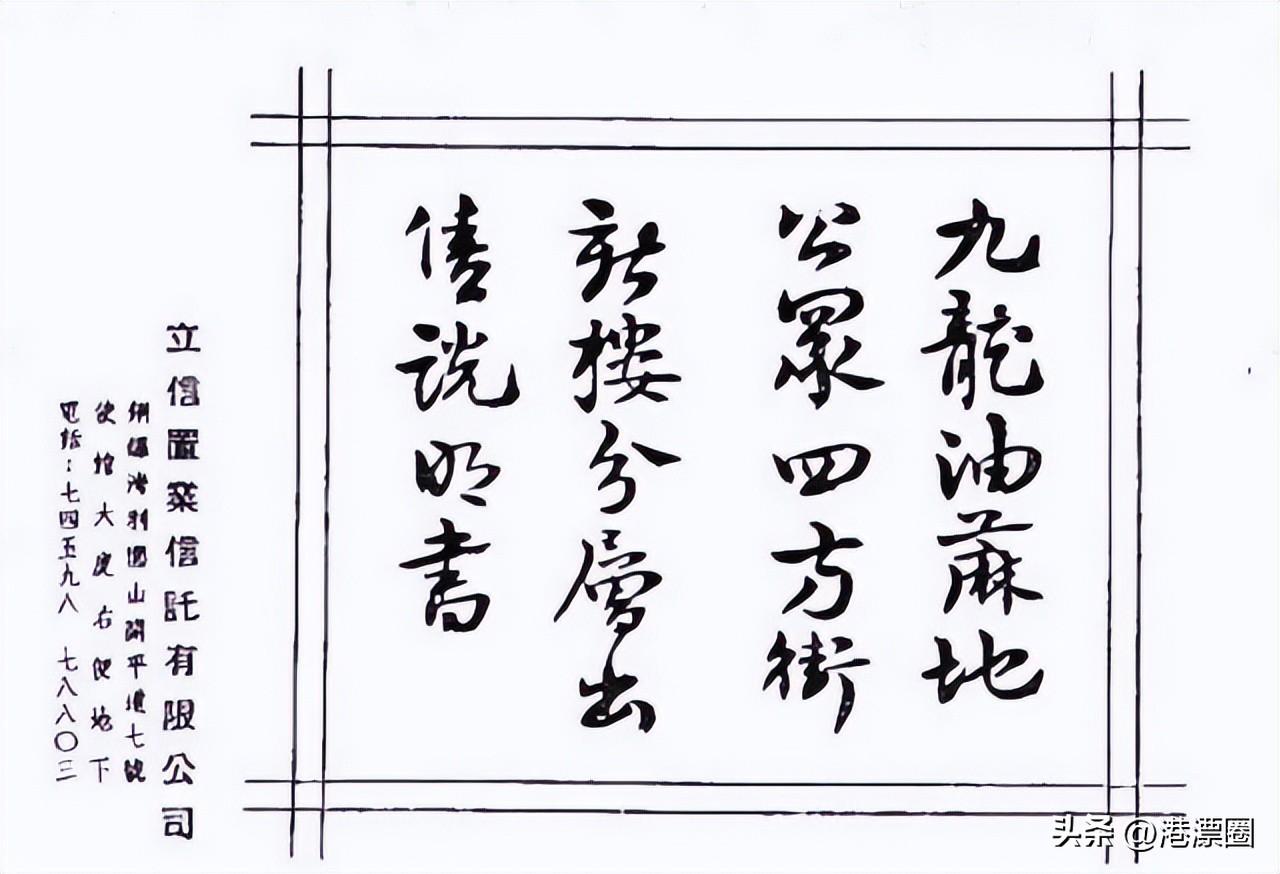 九龍油蔴地
公眾四方街
新樓分層出
售說明書
立信置業信託有限公司
銅鑼灣利園山開平道七號
大廈右便地下
電話：七四五九八 七八八〇三
头条 @港漂圈